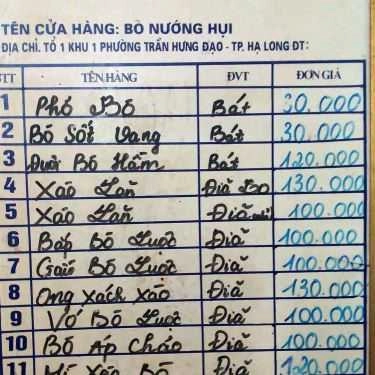 TÊN CỬA HÀNG: BÒ NƯỚNG HỤI
ĐỊA CHỈ. TỔ 1 KHU 1 PHƯỜNG TRẦN HƯNG ĐẠO - TP. HẠ LONG ĐT:
STT TÊN HÀNG ĐVT ĐƠN GIÁ
1 Phở Bò Bát 30.000
2 Bò Sốt Vang Bát 30.000
3 Đuôi Bò Hầm Bát 120.000
4 Xào Lăn Đĩa Bò 130.000
5 Xào Lăn Đĩa 100.000
6 Bắp Bò Luộc Đĩa 100.000
7 Gầu Bò Luộc Đĩa 100.000
8 Ong Xách Xào Đĩa 130.000
9 Vó Bò Luộc Đĩa 100.000
10 Bò Áp Chảo Đĩa 100.000
11 Mì Xào Bò Đĩa 120.000